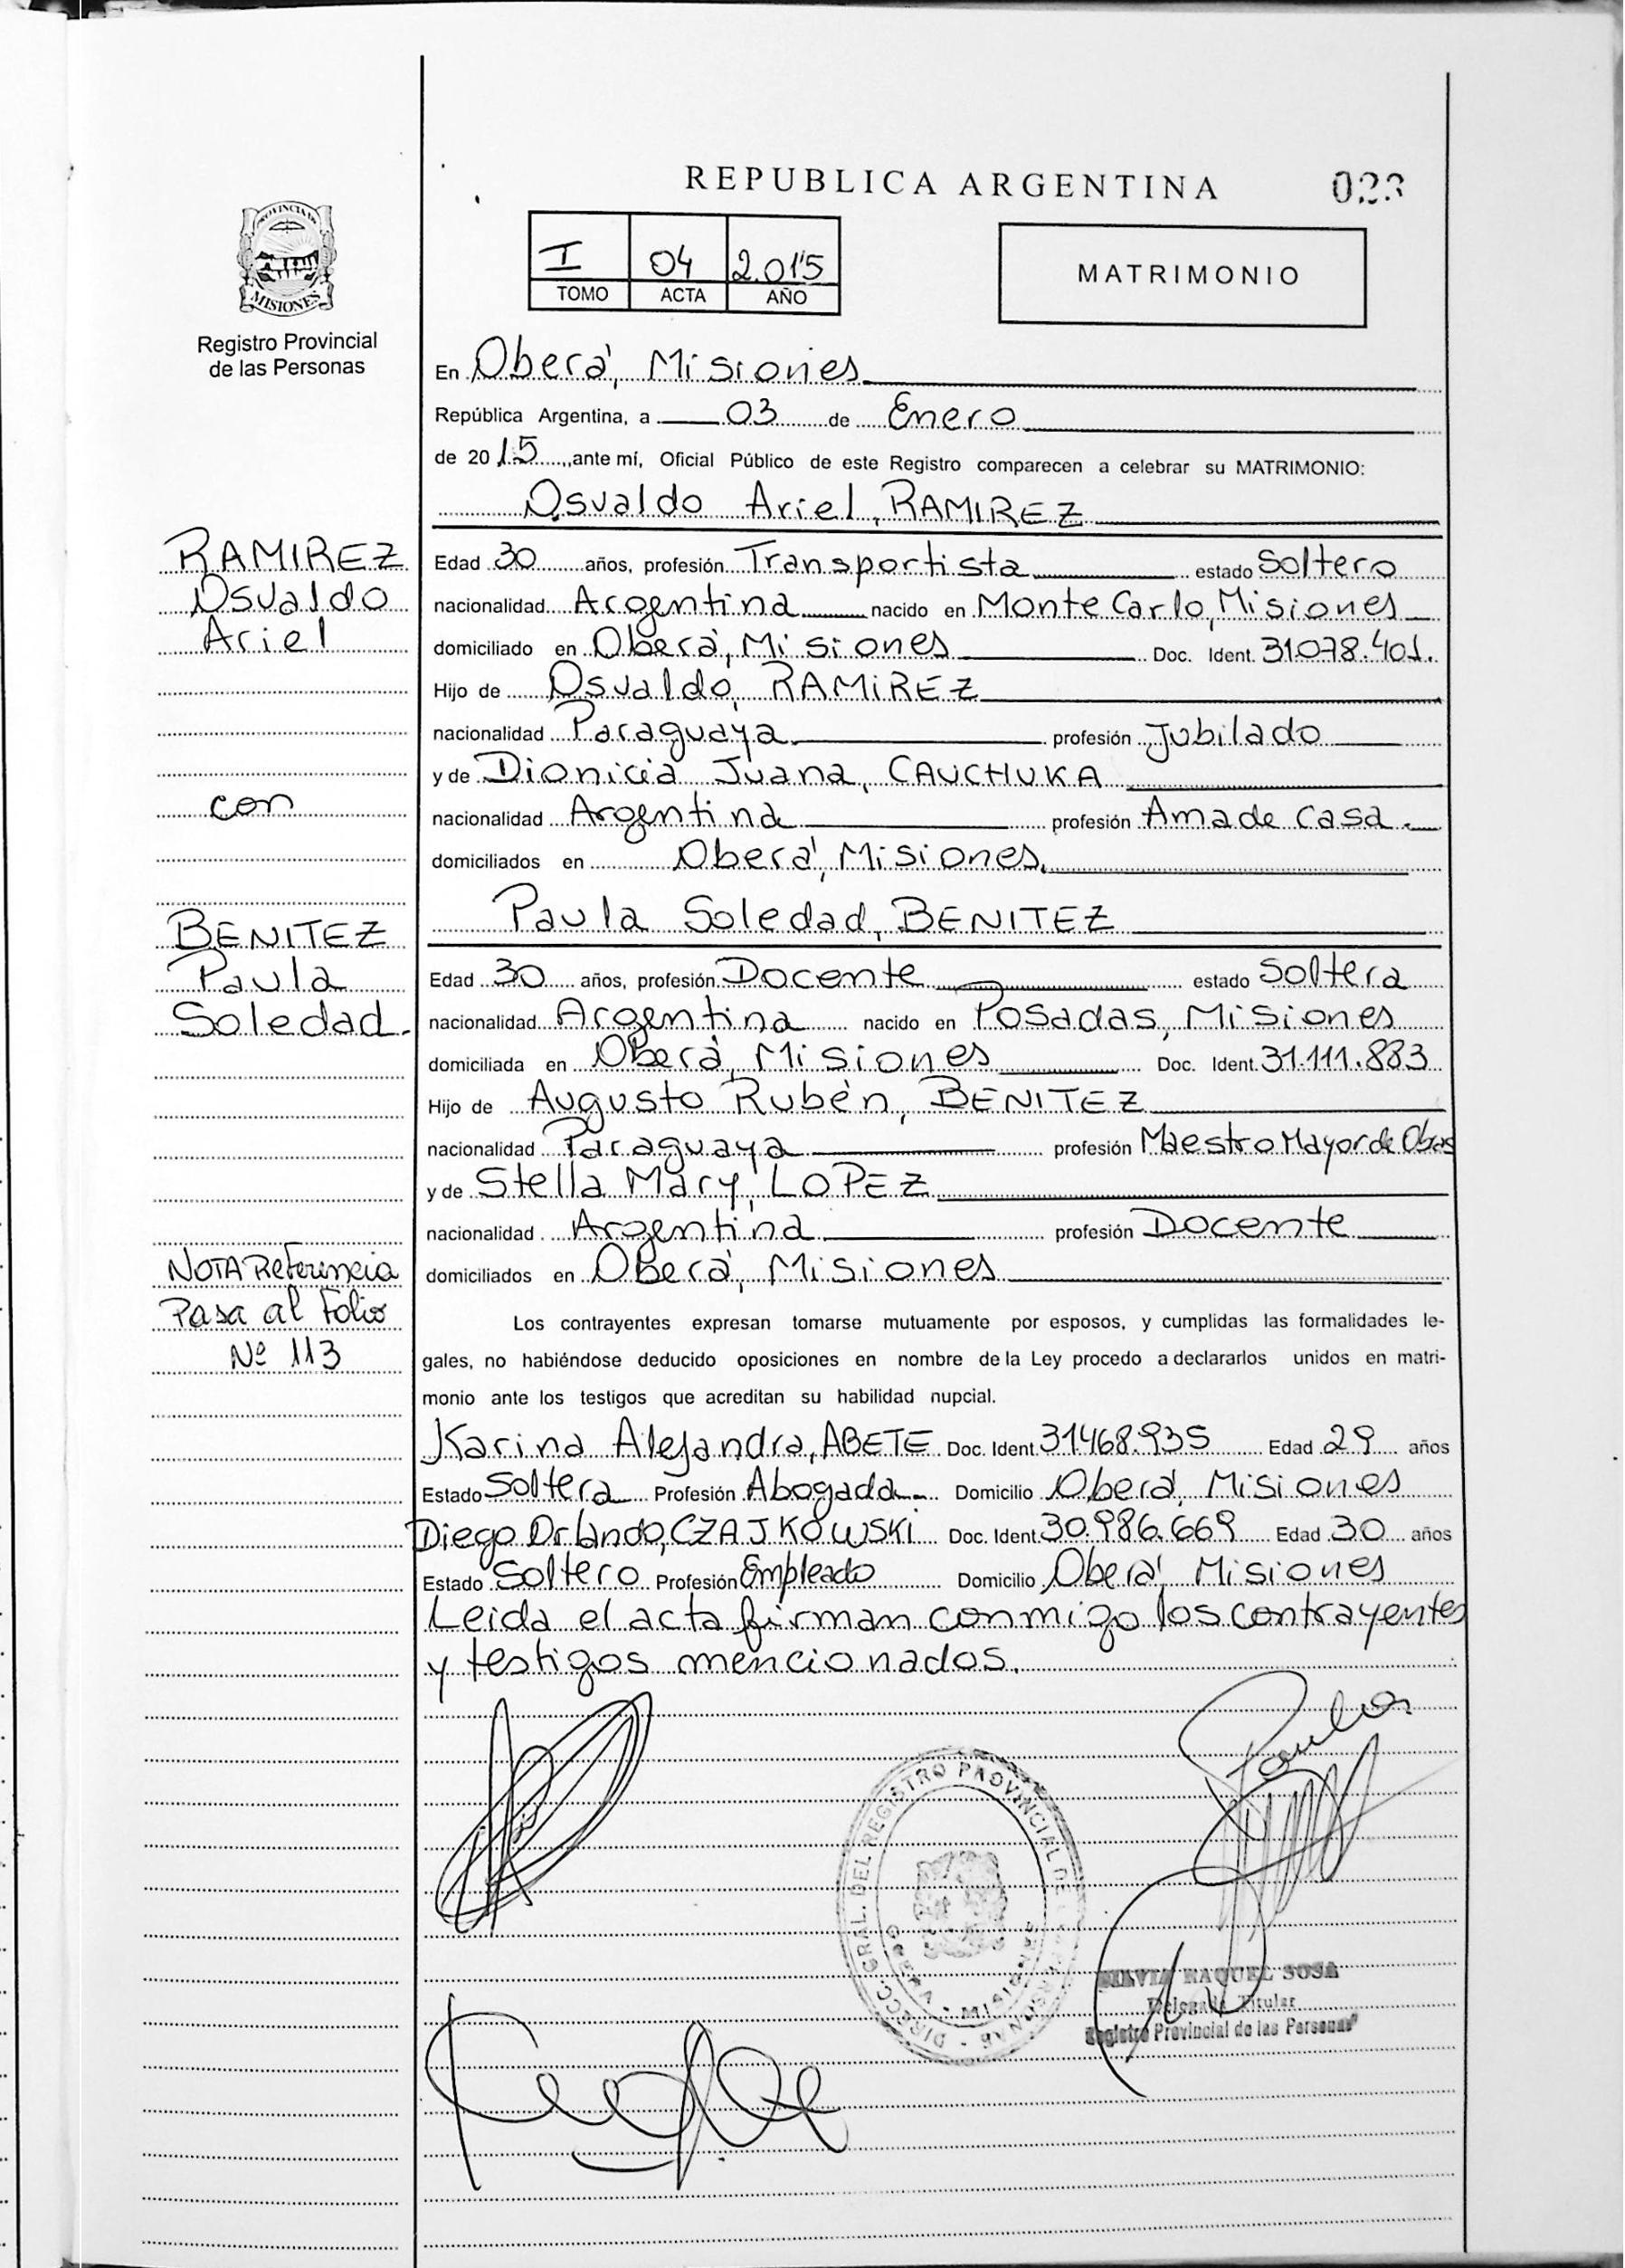 REPUBLICA ARGENTINA
023
PROVINCIA DE
MISIONES
Registro Provincial
de las Personas
I 04 2.015
TOMO ACTA AÑO
MATRIMONIO
En Oberá, Misiones
República Argentina, a 03 de Enero
de 2015, ante mí, Oficial Público de este Registro comparecen a celebrar su MATRIMONIO:
Osvaldo Ariel, RAMIREZ
RAMIREZ
Osvaldo
Ariel
con
BENITEZ
Paula
Soledad.
NOTA Referencia
Pasa al Folio
Nº 113
Edad 30 años, profesión Transportista estado Soltero
nacionalidad Argentina nacido en Monte Carlo, Misiones
domiciliado en Oberá, Misiones Doc. Ident. 31.078.401.
Hijo de Osvaldo, RAMIREZ
nacionalidad Paraguaya profesión Jubilado
y de Dionicia Juana, CAUCHUKA
nacionalidad Argentina profesión Ama de Casa.
domiciliados en Oberá, Misiones.
Paula Soledad, BENITEZ
Edad 30 años, profesión Docente estado Soltera
nacionalidad Argentina nacido en Posadas, Misiones
domiciliada en Oberá, Misiones Doc. Ident. 31.111.883
Hijo de Augusto Rubén, BENITEZ
nacionalidad Paraguaya profesión Maestro Mayor de Obras
y de Stella Mary, LOPEZ
nacionalidad Argentina profesión Docente
domiciliados en Oberá, Misiones
Los contrayentes expresan tomarse mutuamente por esposos, y cumplidas las formalidades le-
gales, no habiéndose deducido oposiciones en nombre de la Ley procedo a declararlos unidos en matri-
monio ante los testigos que acreditan su habilidad nupcial.
Karina Alejandra, ABETE Doc. Ident. 31.468.935 Edad 29 años
Estado Soltera Profesión Abogada Domicilio Oberá, Misiones
Diego Orlando, CZAJKOWSKI Doc. Ident. 30.986.669 Edad 30 años
Estado Soltero Profesión Empleado Domicilio Oberá, Misiones
Leida el acta firman conmigo los contrayentes
y testigos mencionados.
Paula
DIRECC. GRAL. DEL REGISTRO PROVINCIAL DE LAS PERSONAS
MISIONES
SILVIA RAQUEL SOSA
Delegada Titular
Registro Provincial de las Personas